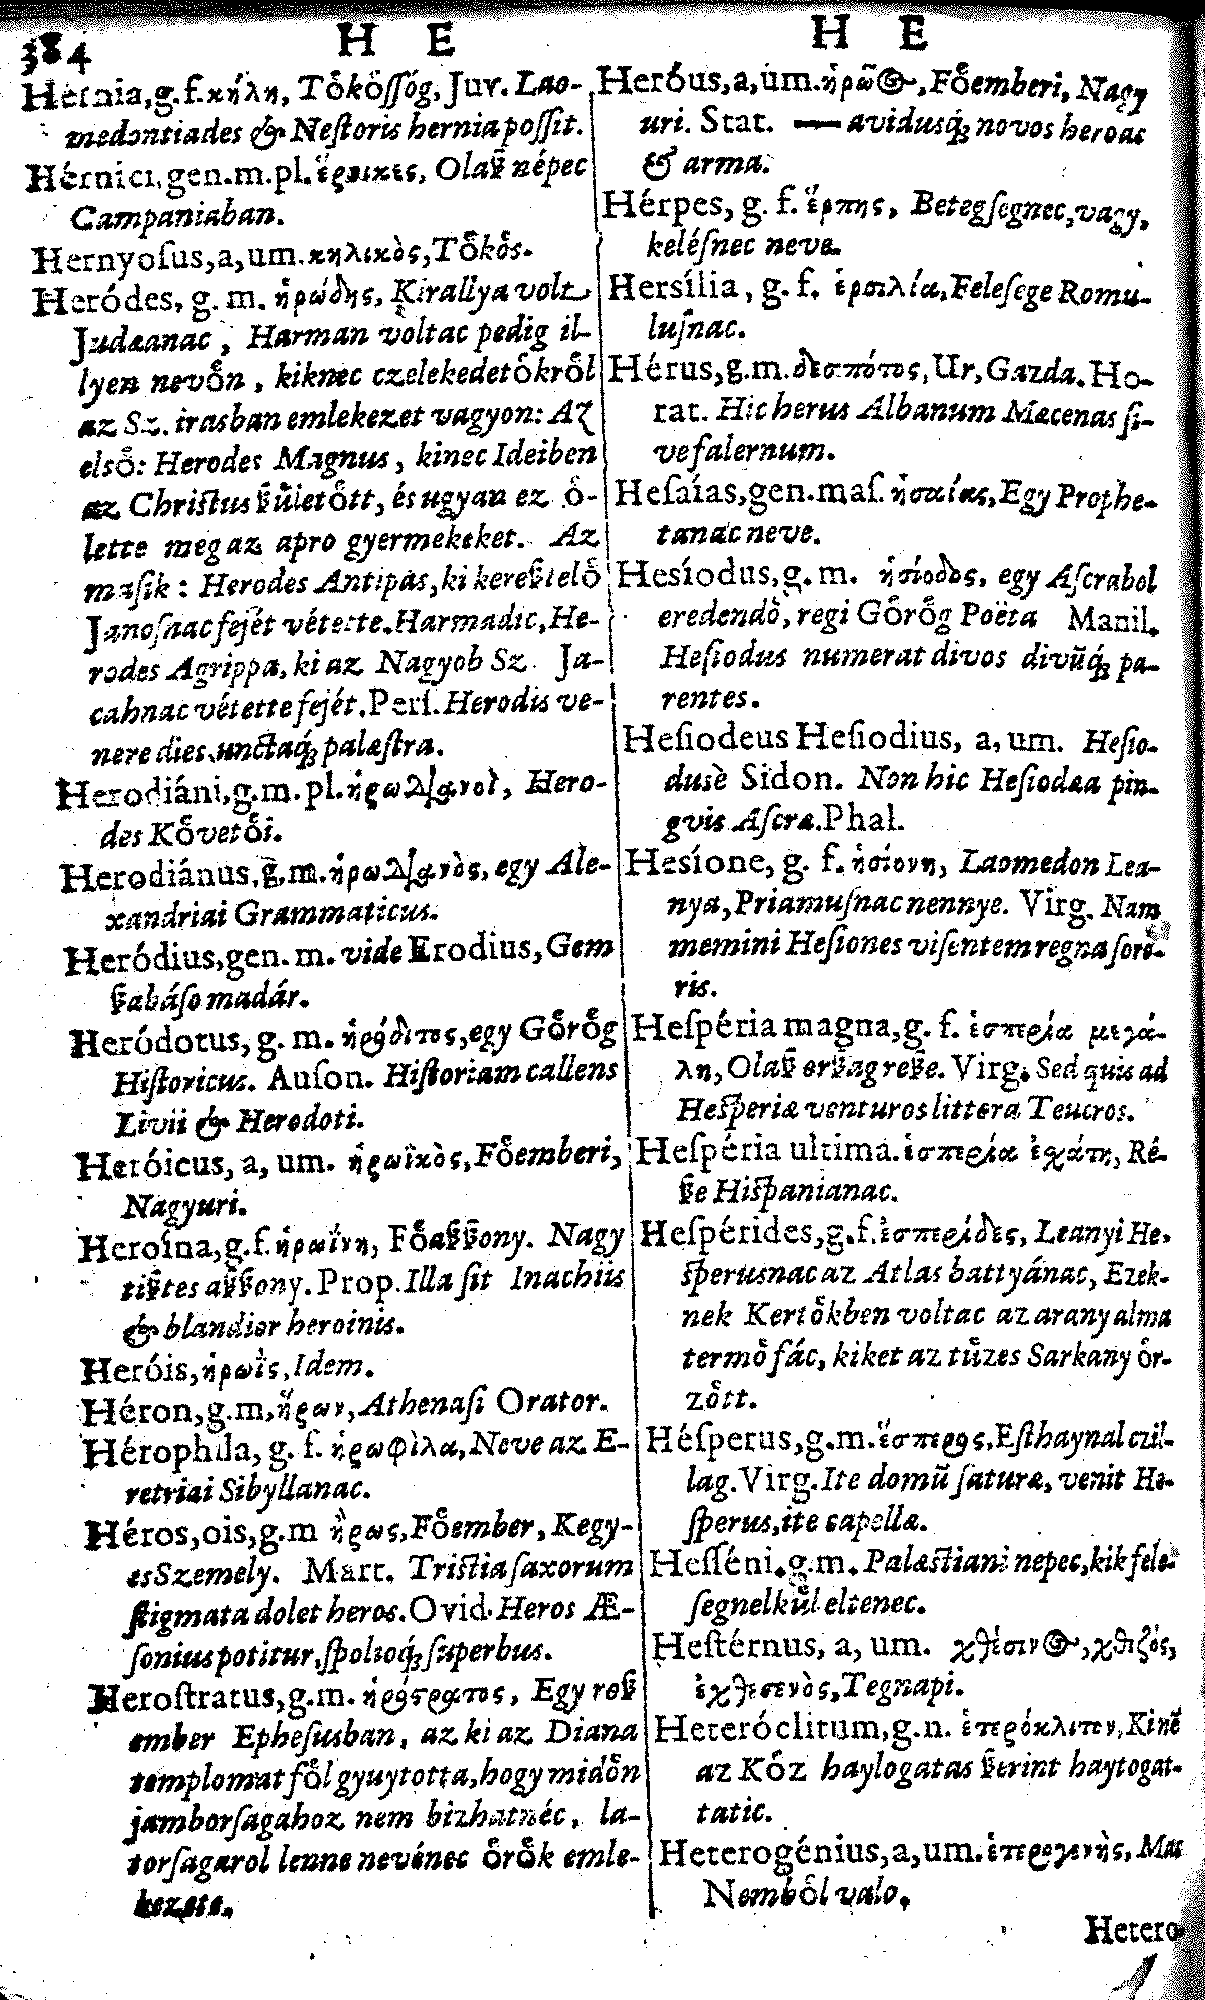 384
H E
H E
Hernia, g. f. κήλη, Tőkőſſóg, Juv. Lao-
medontiades & Neſtoris hernia poſſit.
Hérnici, gen. m. pl. ἕρνικες, Olaſz népec
Campaniaban.
Hernyoſus, a, um. κηλικὸς, Tőkős.
Heródes, g. m. ἡρώδης, Kirallya volt
Judæanac, Harman voltac pedig il-
lyen nevőn, kiknec czelekedetőkről
az Sz. irasban emlekezet vagyon: Az
első: Herodes Magnus, kinec Ideiben
az Chriſtus ſzűletőtt, és ugyan ez ő-
lette meg az apro gyermekeket. Az
maſik: Herodes Antipas, ki kereſztelő
Janoſnac fejét vétette. Harmadic, He-
rodes Agrippa, ki az Nagyob Sz. Ja-
cabnac vétette fejét. Perſ. Herodis ve-
nere dies, unctaq́; palæſtra.
Herodiáni, g. m. pl. ἡρωδιανοὶ, Hero-
des Kővetői.
Herodiánus, g. m. ἡρωδιανὸς, egy Ale-
xandriai Grammaticus.
Heródius, gen. m. vide Erodius, Gem
ſzabáſo madár.
Heródotus, g. m. ἡρόδοτος, egy Gőrőg
Hiſtoricus. Auſon. Hiſtoriam callens
Livii & Herodoti.
Heróicus, a, um. ἡρωϊκὸς, Főemberi,
Nagyuri.
Heroína, g. f. ἡρωίνη, Főaſzſzony. Nagy
tiſztes aſzſzony. Prop. Illa ſit Inachiis
& blandior heroinis.
Heróis, ἡρωῒς, Idem.
Héron, g. m, ἥρων, Athenaſi Orator.
Hérophila, g. f. ἡρωφίλα, Neve az E-
retriai Sibyllanac.
Héros, ois, g. m ἥρως, Főember, Kegy-
es Szemely. Mart. Triſtia ſaxorum
ſtigmata dolet heros. Ovid. Heros Æ-
ſonius potitur, ſpolioq́; ſuperbus.
Heroſtratus, g. m. ἡρόστρατος, Egy roſz
ember Epheſusban, az ki az Diana
templomat főlgyuytotta, hogy midőn
jamborſagahoz nem bizhatnéc, la-
torſagarol lenne nevénec őrők emle-
kezete.
Heróus, a, um. ἡρῷος, Főemberi, Nagy
uri. Stat. — avidusq́; novos heroas
& arma.
Hérpes, g. f. ἕρπης, Betegſegnec, vagy,
keléſnec neve.
Hersília, g. f. ἑρσιλία, Feleſege Romu-
luſnac.
Hérus, g. m. δεσπότος, Ur, Gazda. Ho-
rat. Hic herus Albanum Mæcenas ſi-
ve falernum.
Heſaías, gen. maſ. ἡσαίας, Egy Prophe-
tanac neve.
Hesíodus, g. m. ἡσίοδος, egy Aſcrabol
eredendő, regi Gőrőg Poëta Manil.
Heſiodus numerat divos divũq́; pa-
rentes.
Heſiodeus Heſiodius, a, um. Heſio-
dusè Sidon. Non hic Heſiodæa pin-
gvis Aſcræ. Phal.
Hesíone, g. f. ἡσίονη, Laomedon Lea-
nya, Priamuſnac nennye. Virg. Nam
memini Heſiones viſentem regna ſoro-
ris.
Heſpéria magna, g. f. ἑσπερία μεγά-
λη, Olaſz orſzag reſze. Virg. Sed quis ad
Heſperiæ venturos littora Teucros.
Heſpéria ultima. ἑσπερία ἐχάτη, Ré-
ſze Hiſpanianac.
Heſpérides, g. f. ἑσπερίδες, Leanyi He-
ſperusnac az Atlas battyánac, Ezek-
nek Kertőkben voltac az arany alma
termő fác, kiket az tűzes Sarkany őr-
zőtt.
Héſperus, g. m. ἕσπερος, Eſthaynal czil-
lag. Virg. Ite domũ ſaturæ, venit He-
ſperus, ite capellæ.
Heſſéni, g. m. Palæſtiani nepec, kik fele-
ſegnelkűl eltenec.
Heſtérnus, a, um. χθέσινος, χθιζός,
ἐχθεσινὸς, Tegnapi.
Heteróclitum, g. n. ἑτερόκλιτον, Kinẽ
az Kőz haylogatas ſzerint haytogat-
tatic.
Heterogénius, a, um. ἑτερογενὴς, Mas
Nemből valo.
Hetero-